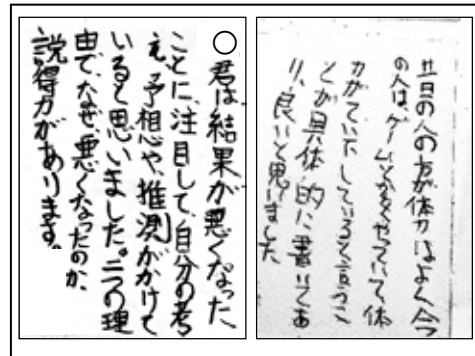 昔の人の方が体力はよく、今
の人は、ゲームとかをやっていて体
力がてい下していると言うこ
とが具体的に書いてあ
り、良いと思いました
○君は結果が悪くなった、
ことに、注目して、自分の考
え、予想や、推測がかけて
いると思いました。二つの理
由で、なぜ、悪くなったのか、
説得力があります。